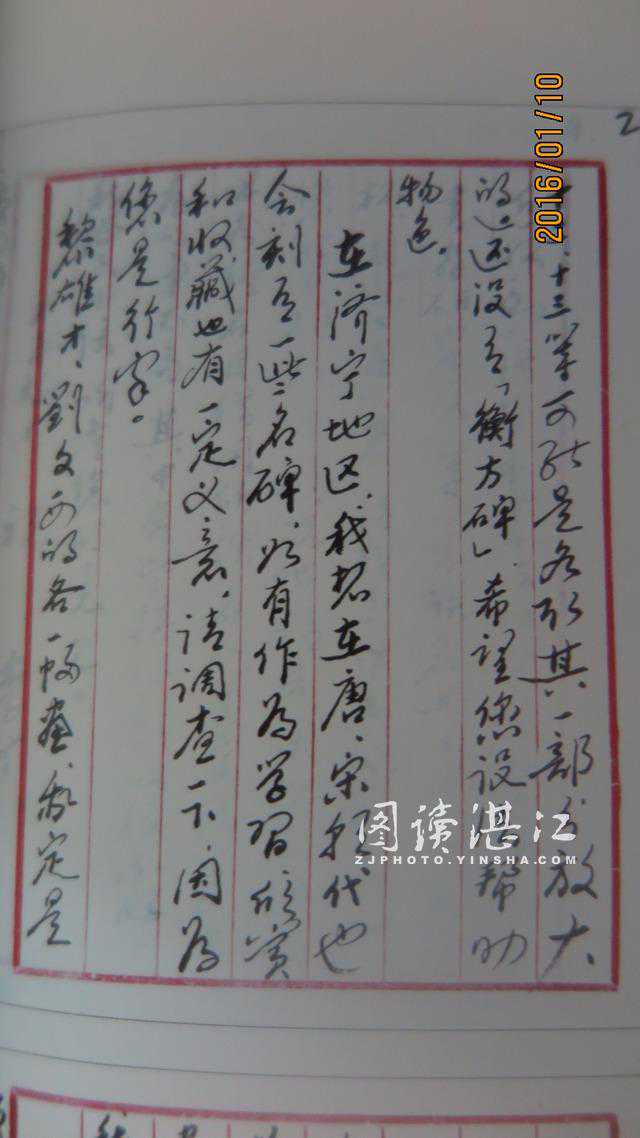 2016/01/10
2
十三等可能是各取其一部分放大
的还没有「衡方碑」希望您设法帮助
物色。
在济宁地区，我想在唐、宋朝代也
会刻有一些名碑，如有作为学习欣赏
和收藏也有一定义意，请调查一下，因为
您是行家。
黎雄才、刘文西的各一幅画，我定是
图读湛江
ZJPHOTO.YINSHA.COM